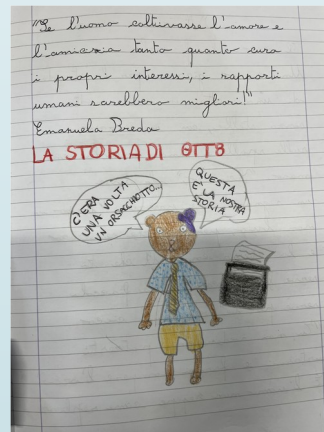 "Se l'uomo coltivasse l'amore e
l'amicizia tanto quanto cura
i propri interessi, i rapporti
umani sarebbero migliori!"
Emanuela Breda
LA STORIA DI OTTO
C'ERA
UNA VOLTA
UN ORSACCHIOTTO...
QUESTA
È LA NOSTRA
STORIA